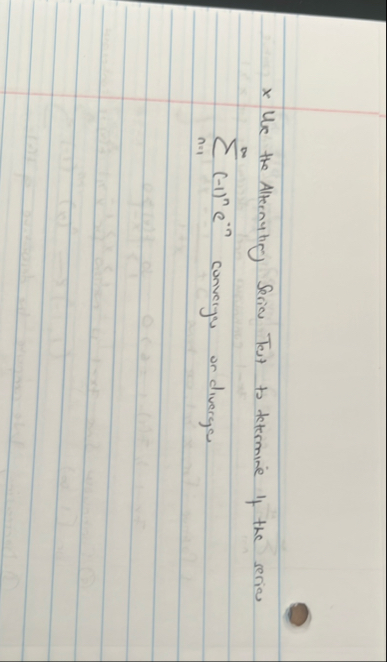 x Use the Alternating Series Test to determine if the series
∞
∑ (-1)ⁿ e⁻ⁿ converges or diverges
n=1